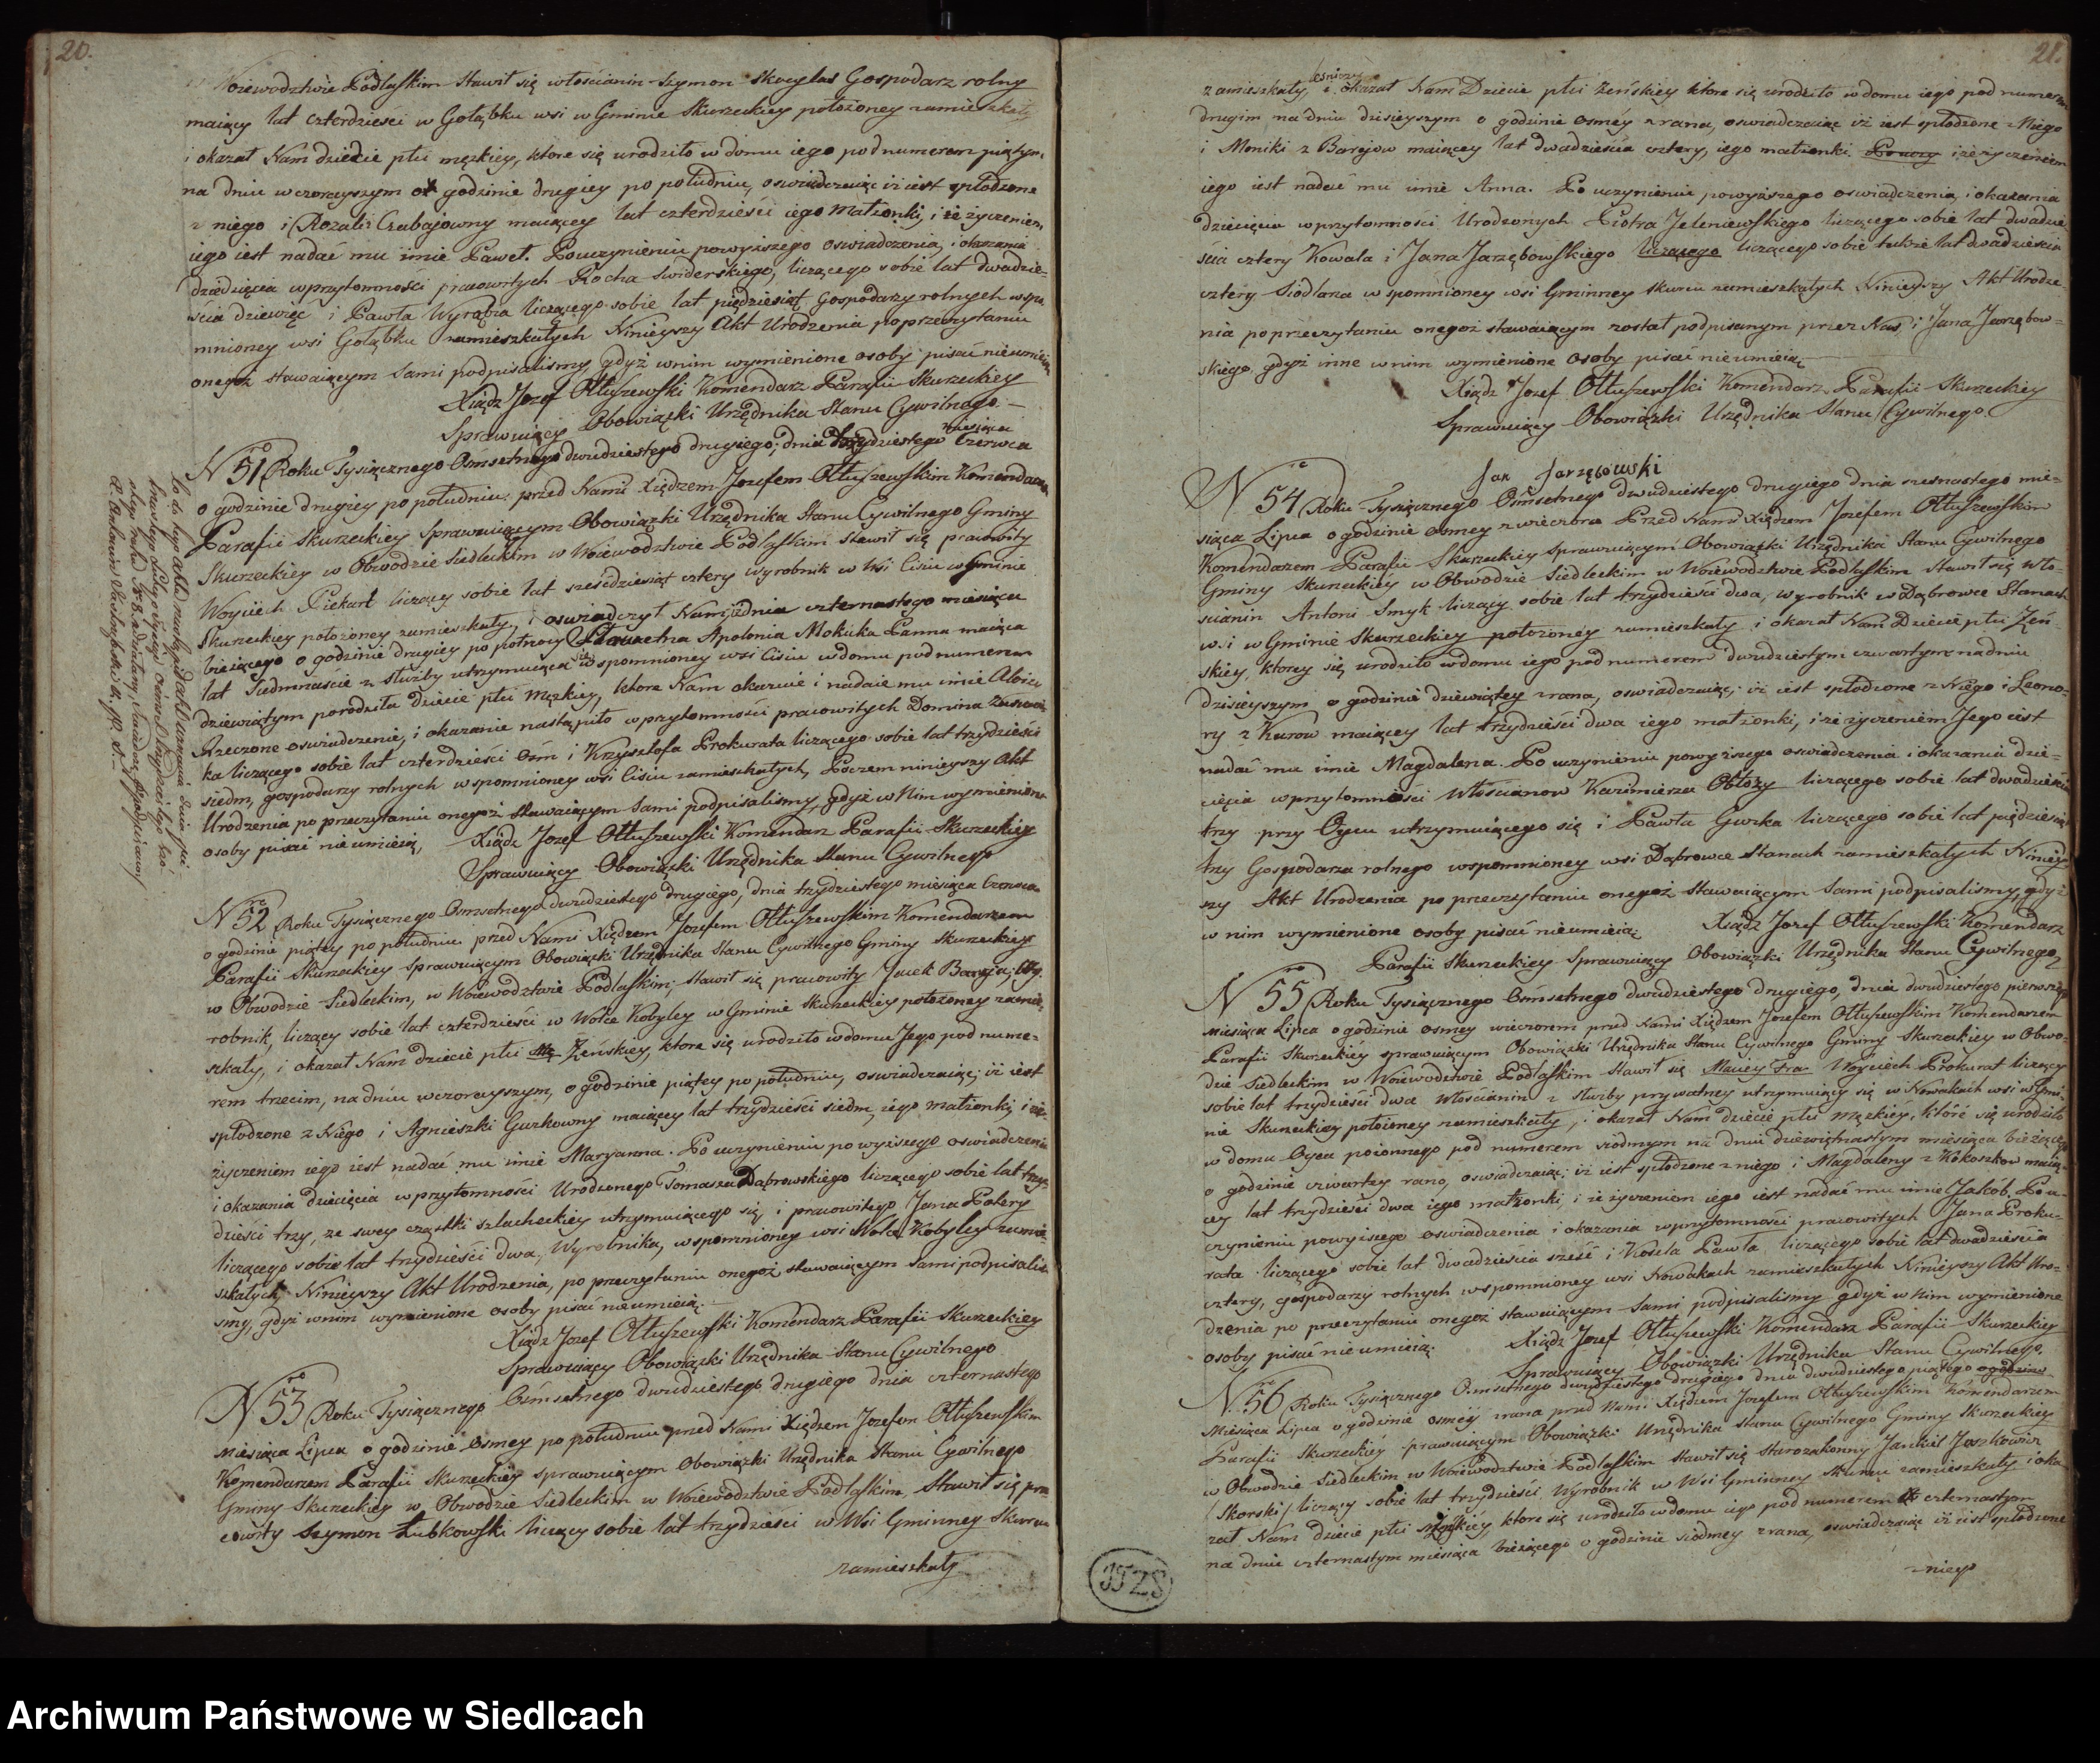 20.
Woiewodztwie Podlaskim stawił się włościanin Szymon Skocylas Gospodarz rolny
maiący lat czterdzieści w Gołąbku wsi w Gminie Skurzeckiey położoney zamieszkały
i okazał Nam dziecie płci męzkiey, ktore się urodziło w domu iego pod numerem piątym,
na dniu wczorayszym o godzinie drugiey po południu, oswiadczaiąc iż iest spłodzone
z niego i Rozalii Czabajowny maiącey lat czterdzieści iego Małżonki, i że życzeniem
iego iest nadać mu imie Paweł. Po uczynieniu powyższego oswiadczenia, i okazania
dziecięcia w przytomności pracowitych Rocha Swiderskiego, liczącego sobie lat dwadzie-
ścia dziewięć i Pawła Wyrąbra liczącego sobie lat pięćdziesiąt Gospodarzy rolnych wspo
mnioney wsi Gołąbku zamieszkałych Ninieyszy Akt Urodzenia po przeczytaniu
onegoż stawaiącym Sami podpisaliśmy gdyż w nim wymienione osoby pisać nieumieią,
Xiądz Jozef Ołtuszewski Komendarz Parafii Skurzeckiey
Sprawuiący Obowiązki Urzędnika Stanu Cywilnego.
N<sup>ro</sup> 51 Roku Tysiącznego Osmsetnego dwudziestego drugiego, dnia trzydziestego miesiąca Czerwca
o godzinie drugiey po południu przed Nami Xiędzem Jozefem Ołtuszewskim Komendarzem
Parafii Skurzeckiey Sprawuiącym Obowiązki Urzędnika Stanu Cywilnego Gminy
Skurzeckiey w Obwodzie Siedleckim w Woiewodztwie Podlaskim stawił się pracowity
Woyciech Piekart liczący sobie lat sześćdziesiąt cztery wyrobnik w Wsi Cisiu w Gminie
Skurzeckiey położoney zamieszkały, i oswiadczył Nam, iż dnia czternastego miesiąca
bieżącego o godzinie drugiey po połnocy Sławetna Apolonia Mokucka Panna maiąca
lat Siedmnaście z służby utrzymuiąca się wspomnioney wsi Cisiu w domu pod numerem
dziewiątym porodziła dziecie płci Męzkiey, ktore Nam okazuie i nadaie mu imie Aloizy
Rzeczone oswiadczenie, i okazanie nastąpiło w przytomności pracowitych Domina
ka liczącego sobie lat czterdzieści Osm i Krzysztofa Prokurata liczącego sobie lat trzydzieści
siedm, gospodarzy rolnych wspomnioney wsi Cisiu zamieszkałych, Poczem ninieyszy Akt
Urodzenia po przeczytaniu onegoż stawaiącym Sami podpisaliśmy, gdyż w Nim wymienione
osoby pisać nieumieią, Xiądz Jozef Ołtuszewski Komendarz Parafii Skurzeckiey
Sprawuiący Obowiązki Urzędnika Stanu Cywilnego
N<sup>ro</sup> 52 Roku Tysiącznego Osmsetnego dwudziestego drugiego, dnia trzydziestego miesiąca Czerwca
o godzinie piątey po południu przed Nami Xiędzem Jozefem Ołtuszewskim Komendarzem
Parafii Skurzeckiey Sprawuiącym Obowiązki Urzędnika Stanu Cywilnego Gminy Skurzeckiey
w Obwodzie Siedleckim, w Woiewodztwie Podlaskim, stawił się pracowity Jacek Baraja, Wy-
robnik, liczący sobie lat czterdzieści w Wolce Kobyley w Gminie Skurzeckiey położoney zamie-
szkały, i okazał Nam dziecie płci Żeńskiey, ktore się urodziło w domu Jego pod nume-
rem trzecim, na dniu wczorayszym, o godzinie piątey po południu, oswiadczaiąc, iż iest
spłodzone z Niego i Agnieszki Gurkowny maiącey lat trzydzieści siedm, iego małżonki, i że
życzeniem iego iest nadać mu imie Maryanna. Po uczynieniu powyższego oswiadczenia
i okazania dziecięcia w przytomności Urodzonego Tomasza Dąbrowskiego liczącego sobie lat trzy-
dzieści trzy, ze swey cząstki szlacheckiey utrzymuiącego się i pracowitego Jana Polery
liczącego sobie lat trzydzieści dwa, Wyrobnika, wspomnioney wsi Wolce Kobyley zamie-
szkałych, Ninieyszy Akt Urodzenia, po przeczytaniu onegoż stawaiącym sami podpisali
śmy, gdyż w nim wymienione osoby pisać nieumieią.
Xiądz Jozef Ołtuszewski Komendarz Parafii Skurzeckiey
Sprawuiący Obowiązki Urzędnika Stanu Cywilnego
N<sup>ro</sup> 53 Roku Tysiącznego Osmsetnego dwudziestego drugiego dnia czternastego
Miesiąca Lipca o godzinie Osmey po południu przed Nami Xiędzem Jozefem Ołtuszewskim
Komendarzem Parafii Skurzeckiey sprawuiącym Obowiązki Urzędnika Stanu Cywilnego
Gminy Skurzeckiey w Obwodzie Siedleckim w Woiewodztwie Podlaskim, Stawił się pra
cowity Szymon Łubkowski liczący sobie lat trzydzieści w Wsi Gminney Skurcu
zamieszkały
21.
zamieszkały, i okazał Nam Dziecie płci Żeńskiey ktore się urodziło w domu iego pod numerem
drugim na dniu dzisieyszym o godzinie osmey z rana, oswiadczaiąc iż iest spłodzone z Niego
i Moniki z Barejow maiącey lat dwadzieścia cztery, iego małżonki. i że życzeniem
iego iest nadać mu imie Anna. Po uczynieniu powyższego oswiadczenia, i okazania
dziecięcia w przytomności Urodzonych Piotra Jeleniewskiego liczącego sobie lat dwadzie
ścia cztery Kowala i Jana Jarzębowskiego liczącego liczącego sobie także lat dwadzieścia
cztery Siodlarza wspomnioney wsi Gminney Skurcu zamieszkałych Ninieyszy Akt Urodze-
nia po przeczytaniu onegoż stawaiącym został podpisanym przez Nas, i Jana Jarzębow-
skiego gdyż inne w nim wymienione Osoby pisać nieumieią
Xiądz Jozef Ołtuszewski Komendarz Parafii Skurzeckiey
Sprawuiący Obowiązki Urzędnika Stanu Cywilnego.
Jan Jarzębowski
N<sup>ro</sup> 54 Roku Tysiącznego Osmsetnego dwudziestego drugiego dnia szesnastego mie-
siąca Lipca o godzinie osmey z wieczora Przed Nami Xiędzem Jozefem Ołtuszewskim
Komendarzem Parafii Skurzeckiey Sprawuiącym Obowiązki Urzędnika Stanu Cywilnego
Gminy Skurzeckiey w Obwodzie Siedleckim w Woiewodztwie Podlaskim stawił się wło-
ścianin Antoni Smyk liczący sobie lat trzydzieści dwa, wyrobnik w Dąbrowce Stanach
wsi w Gminie Skurzeckiey położoney zamieszkały i okazał Nam Dziecie płci Żeń-
skiey, ktorey się urodziło w domu iego pod numerem dwudziestym czwartym na dniu
dzisieyszym o godzinie dziewiątey z rana, oswiadczaiąc, iż iest spłodzone z Niego i Leono-
ry z Kurow maiącey lat trzydzieści dwa iego małżonki, i że życzeniem Jego iest
nadać mu imie Magdalena. Po uczynieniu powyższego oswiadczenia i okazania dzie-
cięcia w przytomności Włościanow Kazimierza Obłozy liczącego sobie lat dwadzieścia
trzy przy Oycu utrzymuiącego się i Pawła Guzka liczącego sobie lat pięćdziesiąt
trzy Gospodarza rolnego wspomnioney wsi Dąbrowce Stanach zamieszkałych Niniey-
szy Akt Urodzenia po przeczytaniu onegoż stawaiącym Sami podpisaliśmy, gdyż
w nim wymienione osoby pisać nieumieią Xiądz Jozef Ołtuszewski Komendarz
Parafii Skurzeckiey Sprawuiący Obowiązki Urzędnika Stanu Cywilnego
N<sup>ro</sup> 55 Roku Tysiącznego Osmsetnego dwudziestego drugiego, dnia dwudziestego pierwszego
miesiąca Lipca o godzinie osmey wieczorem przed Nami Xiędzem Jozefem Ołtuszewskim Komendarzem
Parafii Skurzeckiey sprawuiącym Obowiązki Urzędnika Stanu Cywilnego Gminy Skurzeckiey w Obwo-
dzie Siedleckim w Woiewodztwie Podlaskim stawił się Woyciech Prokurat liczący
sobie lat trzydzieści dwa włościanin z służby prywatney utrzymuiący się w Nowakach wsi w Gmi-
nie Skurzeckiey położoney zamieszkały, i okazał Nam dziecie płci męzkiey, które się urodziło
w domu Oyca poionnego pod numerem siodmym na dniu dziewiętnastym miesiąca bieżącego
o godzinie czwartey rano, oswiadczaiąc, iż iest spłodzone z niego i Magdaleny z Kokoszkow maią-
cey lat trzydzieści dwa iego małżonki, i że życzeniem iego iest nadać mu imie Jakób. Po u-
czynieniu powyższego oswiadczenia i okazania w przytomności pracowitych Jana Proku-
rata liczącego sobie lat dwadzieścia sześć i Kosela Pawła liczącego sobie lat dwadzieścia
cztery, gospodarzy rolnych wspomnioney wsi Nowakach zamieszkałych Ninieyszy Akt Uro-
dzenia po przeczytaniu onegoż stawaiącym Sami podpisaliśmy gdyż w Nim wymienione
osoby pisać nieumieią. Xiądz Jozef Ołtuszewski Komendarz Parafii Skurzeckiey
Sprawuiący Obowiązki Urzędnika Stanu Cywilnego.
N<sup>ro</sup> 56 Roku Tysiącznego Osmsetnego dwudziestego drugiego dnia dwudziestego piątego
Miesiąca Lipca o godzinie osmey z rana przed Nami Xiędzem Jozefem Ołtuszewskim Komendarzem
Parafii Skurzeckiey sprawuiącym Obowiązki Urzędnika Stanu Cywilnego Gminy Skurzeckiey
w Obwodzie Siedleckim w Woiewodztwie Podlaskim stawił się Starozakonny Jankiel Joszkowicz
/Skorski/ liczący sobie lat trzydzieści Wyrobnik w Wsi Gminney Skurcu zamieszkały i oka
zał Nam dziecie płci ktore się urodziło w domu iego pod numerem czternastym
na dniu czternastym miesiąca bieżącego o godzinie siodmey z rana, oswiadczaiąc iż iest spłodzone
z niego
Archiwum Państwowe w Siedlcach